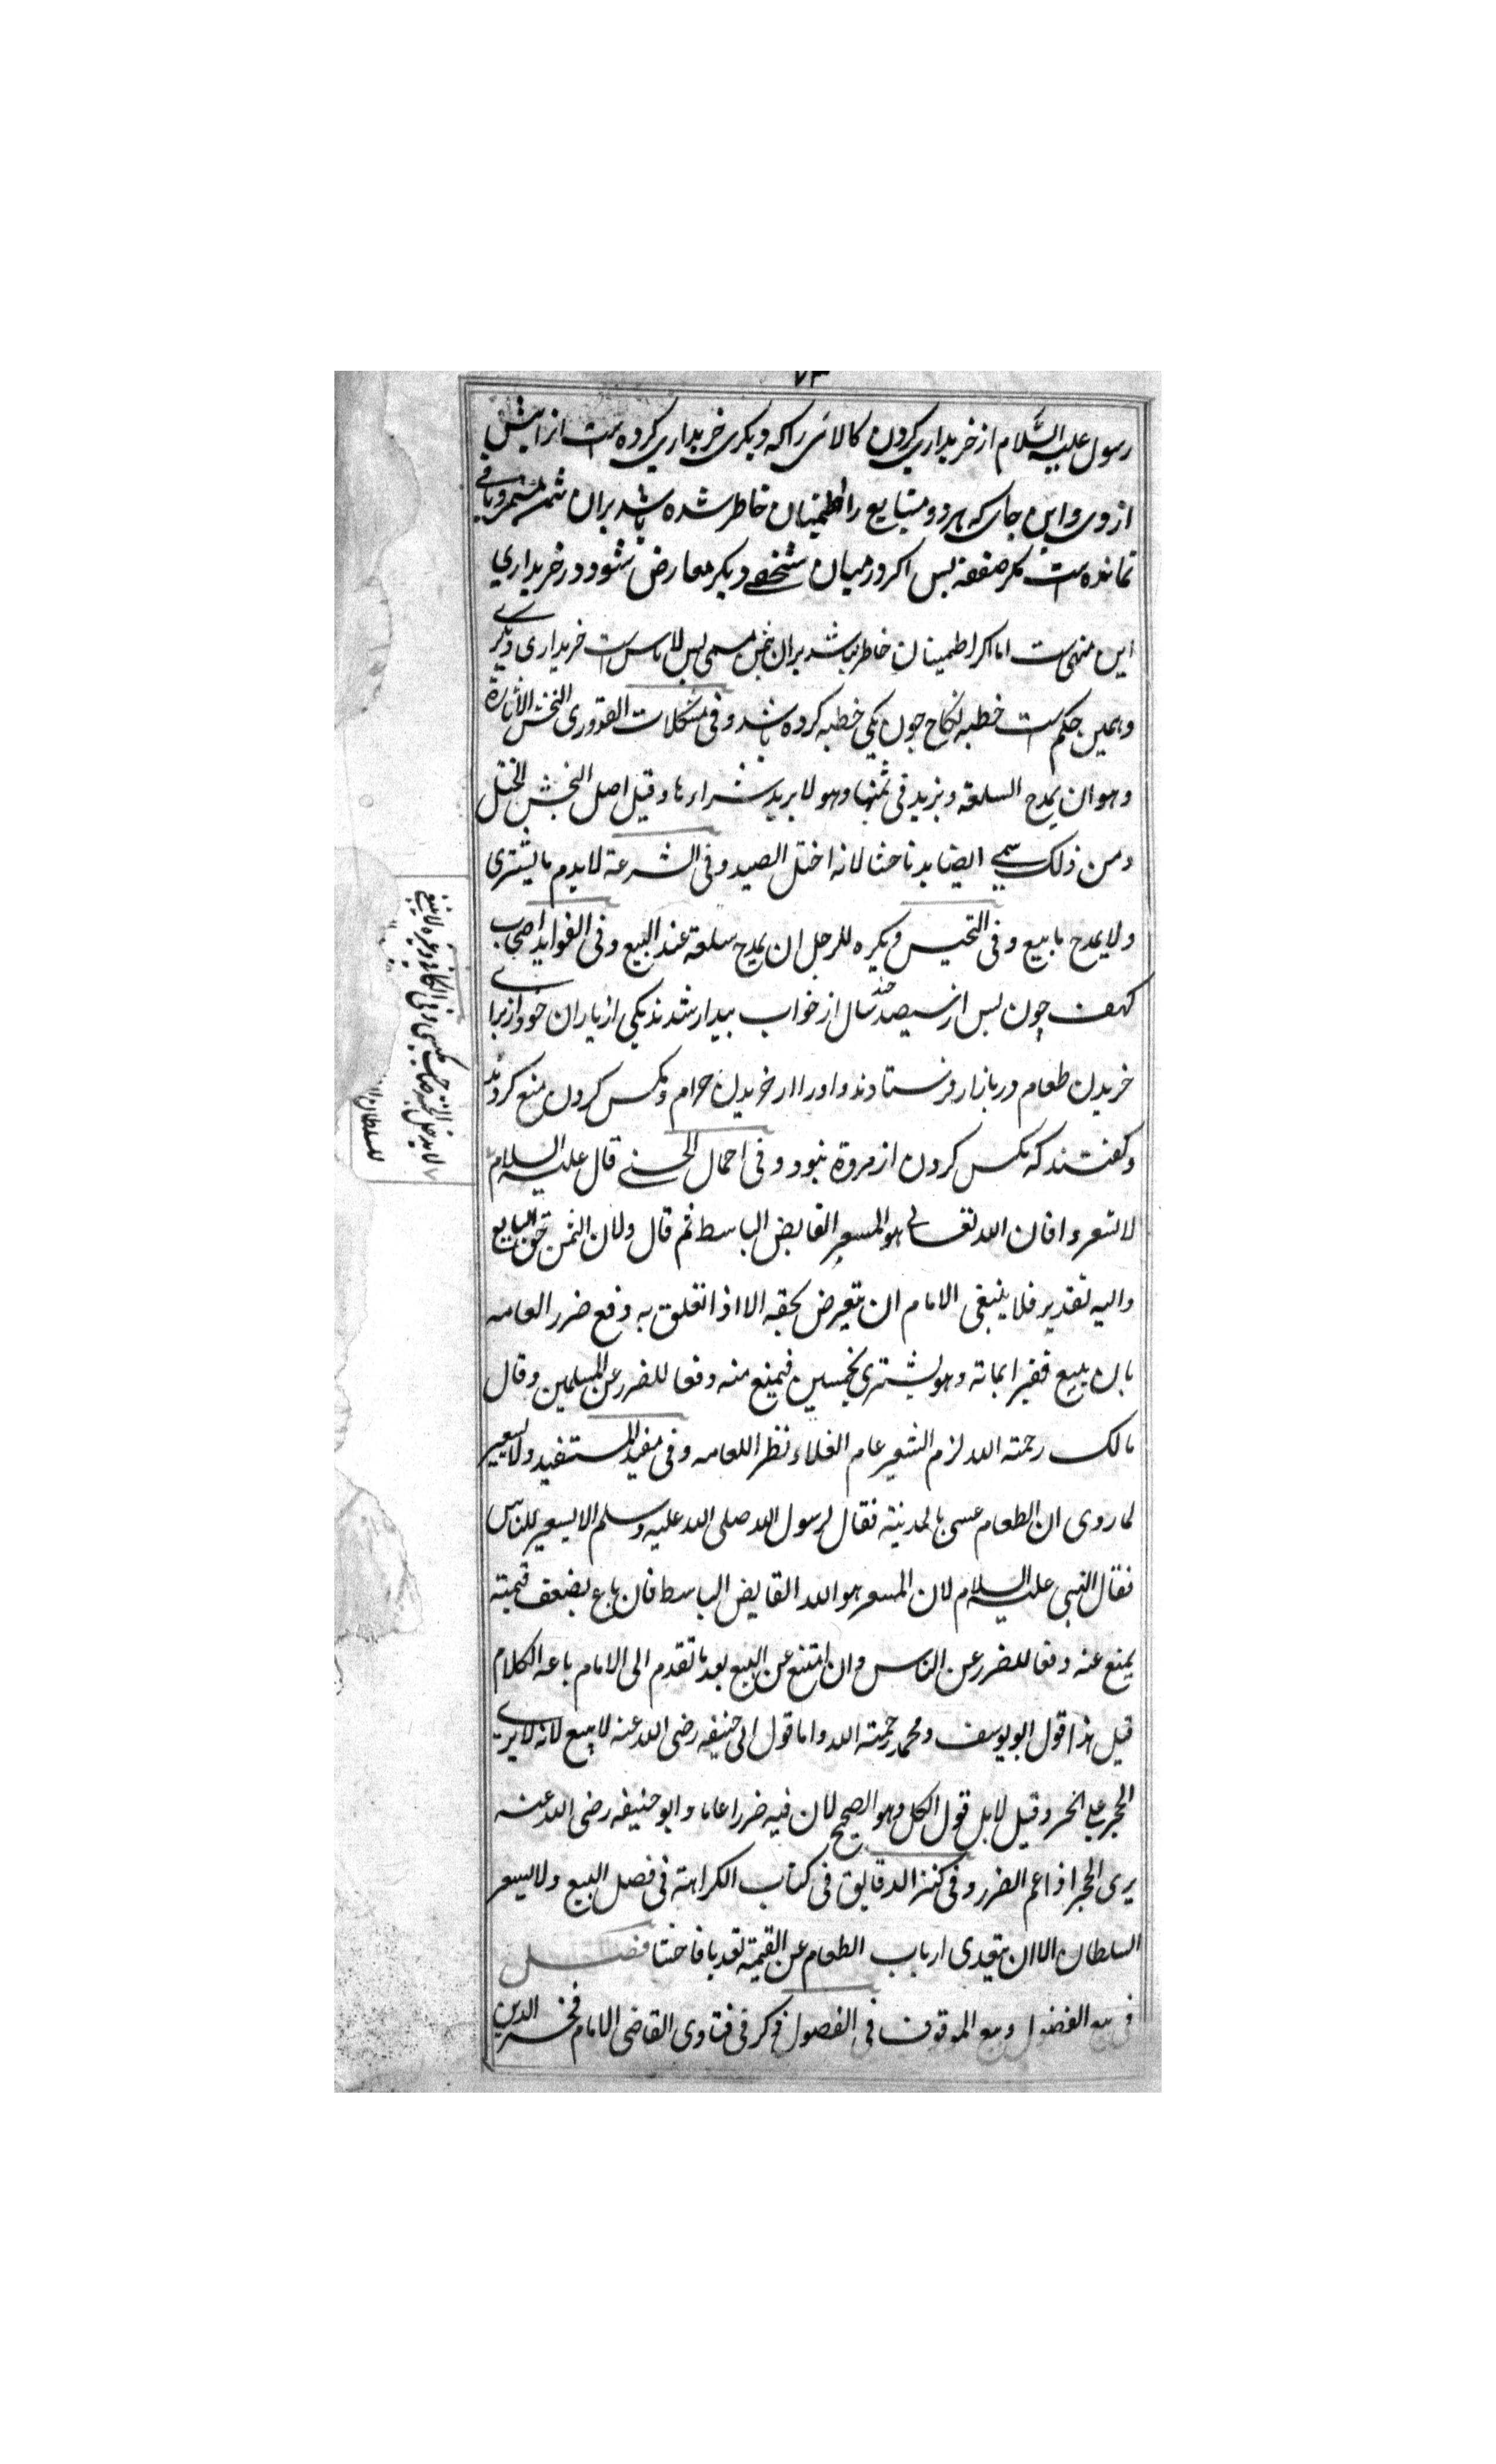 ۷۳
رسول علیه السّلام از خریداری کردن کالائی را که دیکری خریداری کرده است از پیش
از وی و این جای که هر دو متبایع را اطمینان خاطر شده باشد بران ثمن مسمی و باقی
نمانده است مکر صفقه بس اکر در میان شخصے دیکر معارض شود در خریداری
این منهی ست اما اکر اطمینان خاطر نباشد بران ثمن مسمی بس لاباس ست خریداری دیکرے
و همین حکم ست خطبه نکاح چون یکی خطبه کرده باشد و فی مشکلات القدوری النجش الاثارة
و هو ان یمدح السلعة و یزید فی ثمنها و هو لا یرید شراءها و قیل اصل النجش الختل
و من ذلک سمے الصاید ناجشا لانه اختل الصید و فی الشرعة لا یذم ما یشتری
و لا یمدح ما یبیع و فی التجنیس و یکره للرجل ان یمدح سلعة عند البیع و فی الفواید اصحاب
کهف چون بس از سیصد سال از خواب بیدار شدند یکی از یاران خود از برای
خریدن طعام در بازار فرستادند و او را از خریدن حرام و مکس کردن منع کردند
و کفتند که مکس کردن از مروة نبود و فی اجمال الحسنے قال علیه السلام
لا تسعروا فان الله تعالی هو المسعر القابض الباسط ثم قال و لان الثمن حق البایع
و الیه تقدیر فلا ینبغی الامام ان یتعرض بحقه الا اذا تعلق به دفع ضرر العامه
بان یبیع قفیزا بمائة و هو یشتری بخمسین فیمنع منه دفعا للضرر عن المسلمین و قال
مالک رحمته الله لزم التسعیر عام الغلاء نظرا للعامه و فی مفید المستفید و لا یسعیر
لما روی ان الطعام عسی بالمدینة فقال لرسول الله صلی الله علیه و سلم الا یسعیر للناس
فقال النبی علیه السلام لان المسعر هو الله القابض الباسط فان باع بضعف قیمته
یمنع عنه دفعا للضرر عن الناس و ان امتنع عن البیع بعد ما تقدم الی الامام باعه الکلام
قیل هذا قول ابو یوسف و محمد رحمته الله و اما قول ابی حنیفه رضی الله عنه لا یبیع لانه لا یری
الحجر علی الحر و قیل لا بل قول الکل و هو الصحیح لان فیه ضررا عاما و ابو حنیفه رضی الله عنه
یری الحجر اذا عم الضرر و فی کنز الدقایق فی کتاب الکراهته فی فصل البیع و لا یسعر
السلطان الا ان یتعدی ارباب الطعام عن القیمة تعدیا فاحشا فصل
فی بیع الفضول و بیع الموقوف فی الفصول ذکر فی فتاوی القاضی الامام فخر الدین
لا یدخل الجنة صاحب مکس
للسلطان